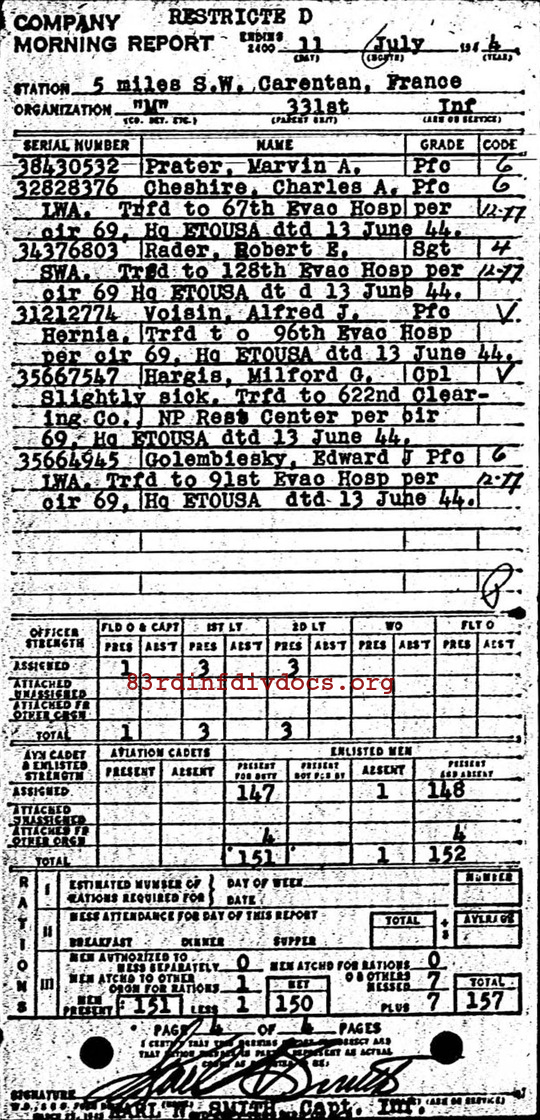 RESTRICTE D
COMPANY
MORNING REPORT ENDING 2400 11 July 194 4
(DAY) (MONTH) (YEAR)
STATION 5 miles S.W. Carentan, France
ORGANIZATION "M" 331st Inf
(CO. DET. ETC.) (PARENT UNIT) (ARM OR SERVICE)
SERIAL NUMBER NAME GRADE CODE
38430532 Prater, Marvin A. Pfc 6
32828376 Cheshire, Charles A. Pfc 6
LWA. Trfd to 67th Evac Hosp per 12-77
cir 69, Hq ETOUSA dtd 13 June 44.
34376803 Rader, Robert E. Sgt 4
SWA. Trfd to 128th Evac Hosp per 12-77
cir 69 Hq ETOUSA dt d 13 June 44.
31212774 Voisin, Alfred J. Pfc V
Hernia. Trfd t o 96th Evac Hosp
per cir 69, Hq ETOUSA dtd 13 June 44.
35667547 Hargis, Milford G. Cpl V
Slightly sick. Trfd to 622nd Clear-
ing Co. NP Rest Center per cir
69, Hq ETOUSA dtd 13 June 44.
35664945 Golembiesky, Edward J Pfc 6
LWA. Trfd to 91st Evac Hosp per 12-77
cir 69, Hq ETOUSA dtd 13 June 44.
OFFICER STRENGTH FLD O & CAPT 1ST LT 2D LT WO FLT O
PRES ABS'T PRES ABS'T PRES ABS'T PRES ABS'T PRES ABS'T
ASSIGNED 1 3 3
83rdinfdivdocs.org
ATTACHED UNASSIGNED
ATTACHED FR OTHER ORGN
TOTAL 1 3 3
AVN CADET & ENLISTED STRENGTH AVIATION CADETS ENLISTED MEN
PRESENT ABSENT PRESENT FOR DUTY PRESENT NOT FOR DY ABSENT PRESENT AND ABSENT
ASSIGNED 147 1 148
ATTACHED UNASSIGNED
ATTACHED FR OTHER ORGN 4 4
TOTAL 151 1 152
RATIONS
I ESTIMATED NUMBER OF RATIONS REQUIRED FOR DAY OF WEEK NUMBER
DATE
II MESS ATTENDANCE FOR DAY OF THIS REPORT TOTAL ÷ 3 AVERAGE
BREAKFAST DINNER SUPPER
III MEN AUTHORIZED TO MESS SEPARATELY 0 MEN ATCHD FOR RATIONS 0
MEN ATCHD TO OTHER ORGN FOR RATIONS 1 NET O & OTHERS MESSED 7 TOTAL
MEN PRESENT 151 LESS 1 150 PLUS 7 157
PAGE 4 OF 4 PAGES
I CERTIFY THAT THIS MORNING REPORT IS CORRECT AND
SIGNATURE Karl N Smith
KARL N. SMITH, Capt. Inf. (ARM OR SERVICE)